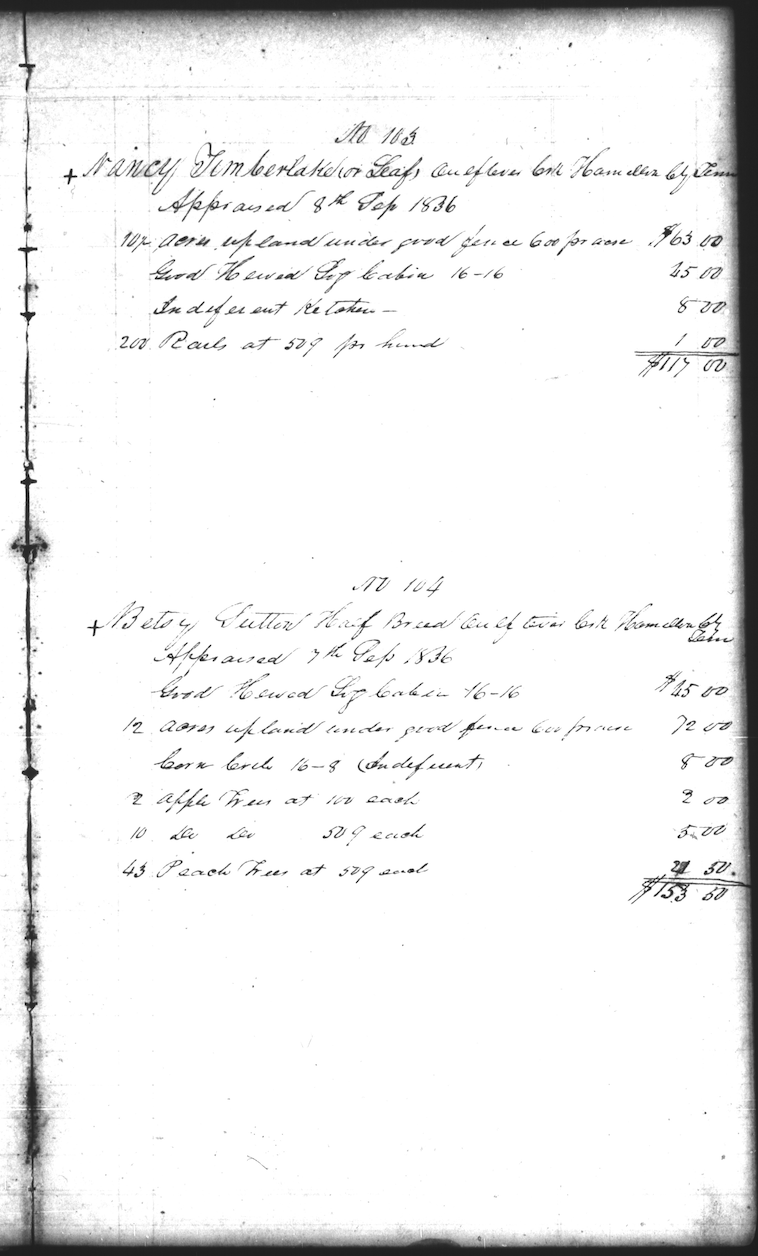 No 103
+ Nancy Timberlake (or Leaf) Ooltewa Crk Hamilton Cty Tenn
Appraised 8th Sep 1836
10½ acres upland under good fence 600 pr acre $63 00
Good Hewed Log Cabin 16-16 45 00
Indeferent Kitchen - 8 00
200 Rails at 50¢ pr hund 1 00
$117 00
No 104
+ Betsy Sutton Half Breed Crk Hamilton Cty
Tenn
Appraised 7th Sep 1836
Good Hewed Log Cabin 16-16 $45 00
12 acres upland under good fence 600 pr acre 72 00
Corn Crib 16-8 (Indeferent) 8 00
2 Apple Trees at 100 each 2 00
10 Do Do 50¢ each 5 00
43 Peach Trees at 50¢ each 21 50
$153 50